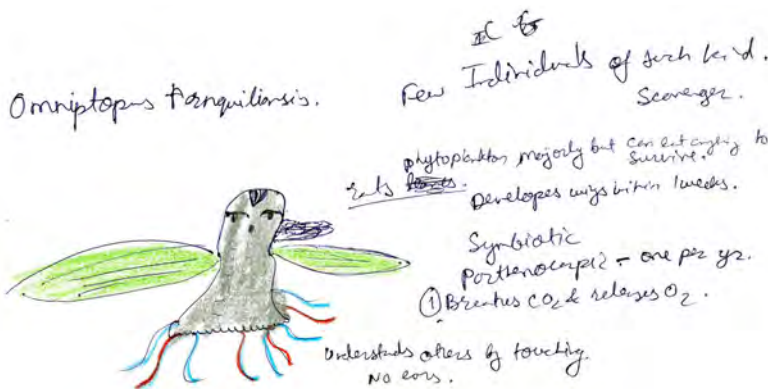 Omniptopus tranquiliansis.
Few Individuals of such kind.
Scavenger.
eats phytoplankton majorly but can eat anything to
survive.
Developes wings within 1 weeks.
Symbiotic
Parthenocarpic - one per yr.
① Breathes CO2 & releases O2.
Understands others by touching.
No ears.